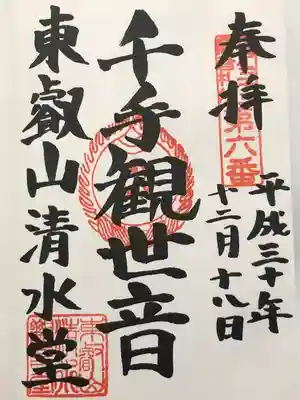 奉拝
第六番
平成三十年
十二月十八日
千手観世音
東叡山清水堂